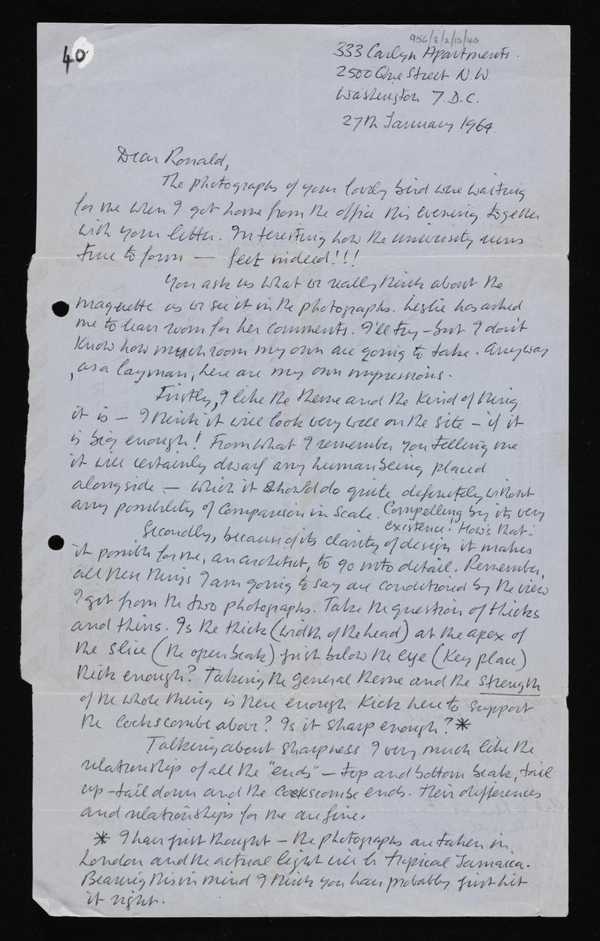 40
956/2/2/13/40
333 Carlyn Apartments.
2500 Que Street N W
Washington 7 D.C.
27th January 1964
Dear Ronald,
The photographs of your lovely bird were waiting
for me when I got home from the office this evening together
with your letter. Interesting how the university runs
true to form — feet indeed!!!
You ask us what we really think about the
maquette as we see it in the photographs. Leslie has asked
me to leave room for her comments. I'll try – but I don't
know how much room my own are going to take. Anyway
, as a layman, here are my own impressions.
Firstly, I like the theme and the kind of thing
it is – I think it will look very well on the site – if it
is big enough! From what I remember you telling me
it will certainly dwarf any human being placed
alongside – which it should do quite definitely without
any possibility of comparison in scale. Compelling by its very
existence! How's that!
Secondly, because of its clarity of design it makes
it possible for me, an architect, to go into detail. Remember,
all these things I am going to say are conditioned by the view
I get from the two photographs. Take the question of thicks
and thins. Is the thick (width of the head) at the apex of
the slice (the open beak) just below the eye (key place)
thick enough? Taking the general theme and the strength
of the whole thing is there enough kick here to support
the cockscombe above? Is it sharp enough? *
Talking about sharpness I very much like the
relationship of all the "ends" – top and bottom beak, tail
up – tail down and the cockscombe ends. Their differences
and relationships for the are fine.
* I have just thought – the photographs are taken in
London and the actual light will be tropical Jamaica.
Bearing this in mind I think you have probably just hit
it right.